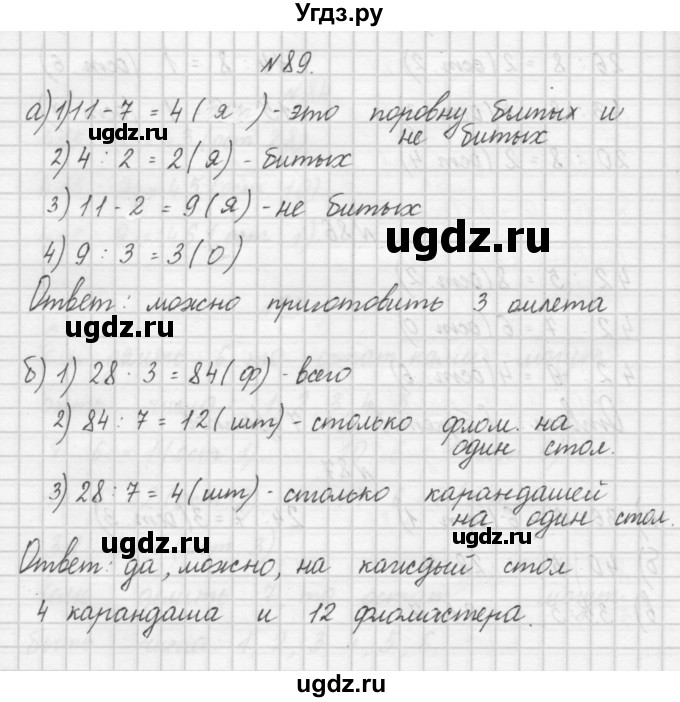 Угдз.ру
№ 89.
а) 1) 11 - 7 = 4 ( я ) - это поровну бытых и
не битых
ugdz.ru
2) 4 : 2 = 2 ( я ) - битых
3) 11 - 2 = 9 ( я ) - не битых
ugdz.ru
4) 9 : 3 = 3 ( о )
Ответ : можно приготовить 3 омлета
ugdz.ru
б) 1) 28 · 3 = 84 ( ф ) - всего
2) 84 : 7 = 12 ( шт ) - столько флом. на
один стол.
ugdz.ru
3) 28 : 7 = 4 ( шт ) - столько карандашей
на один стол.
ugdz.ru
ugdz.ru
Ответ : да, можно, на каждый стол
4 карандаша и 12 фломастера.
ugdz.ru
ugdz.ru